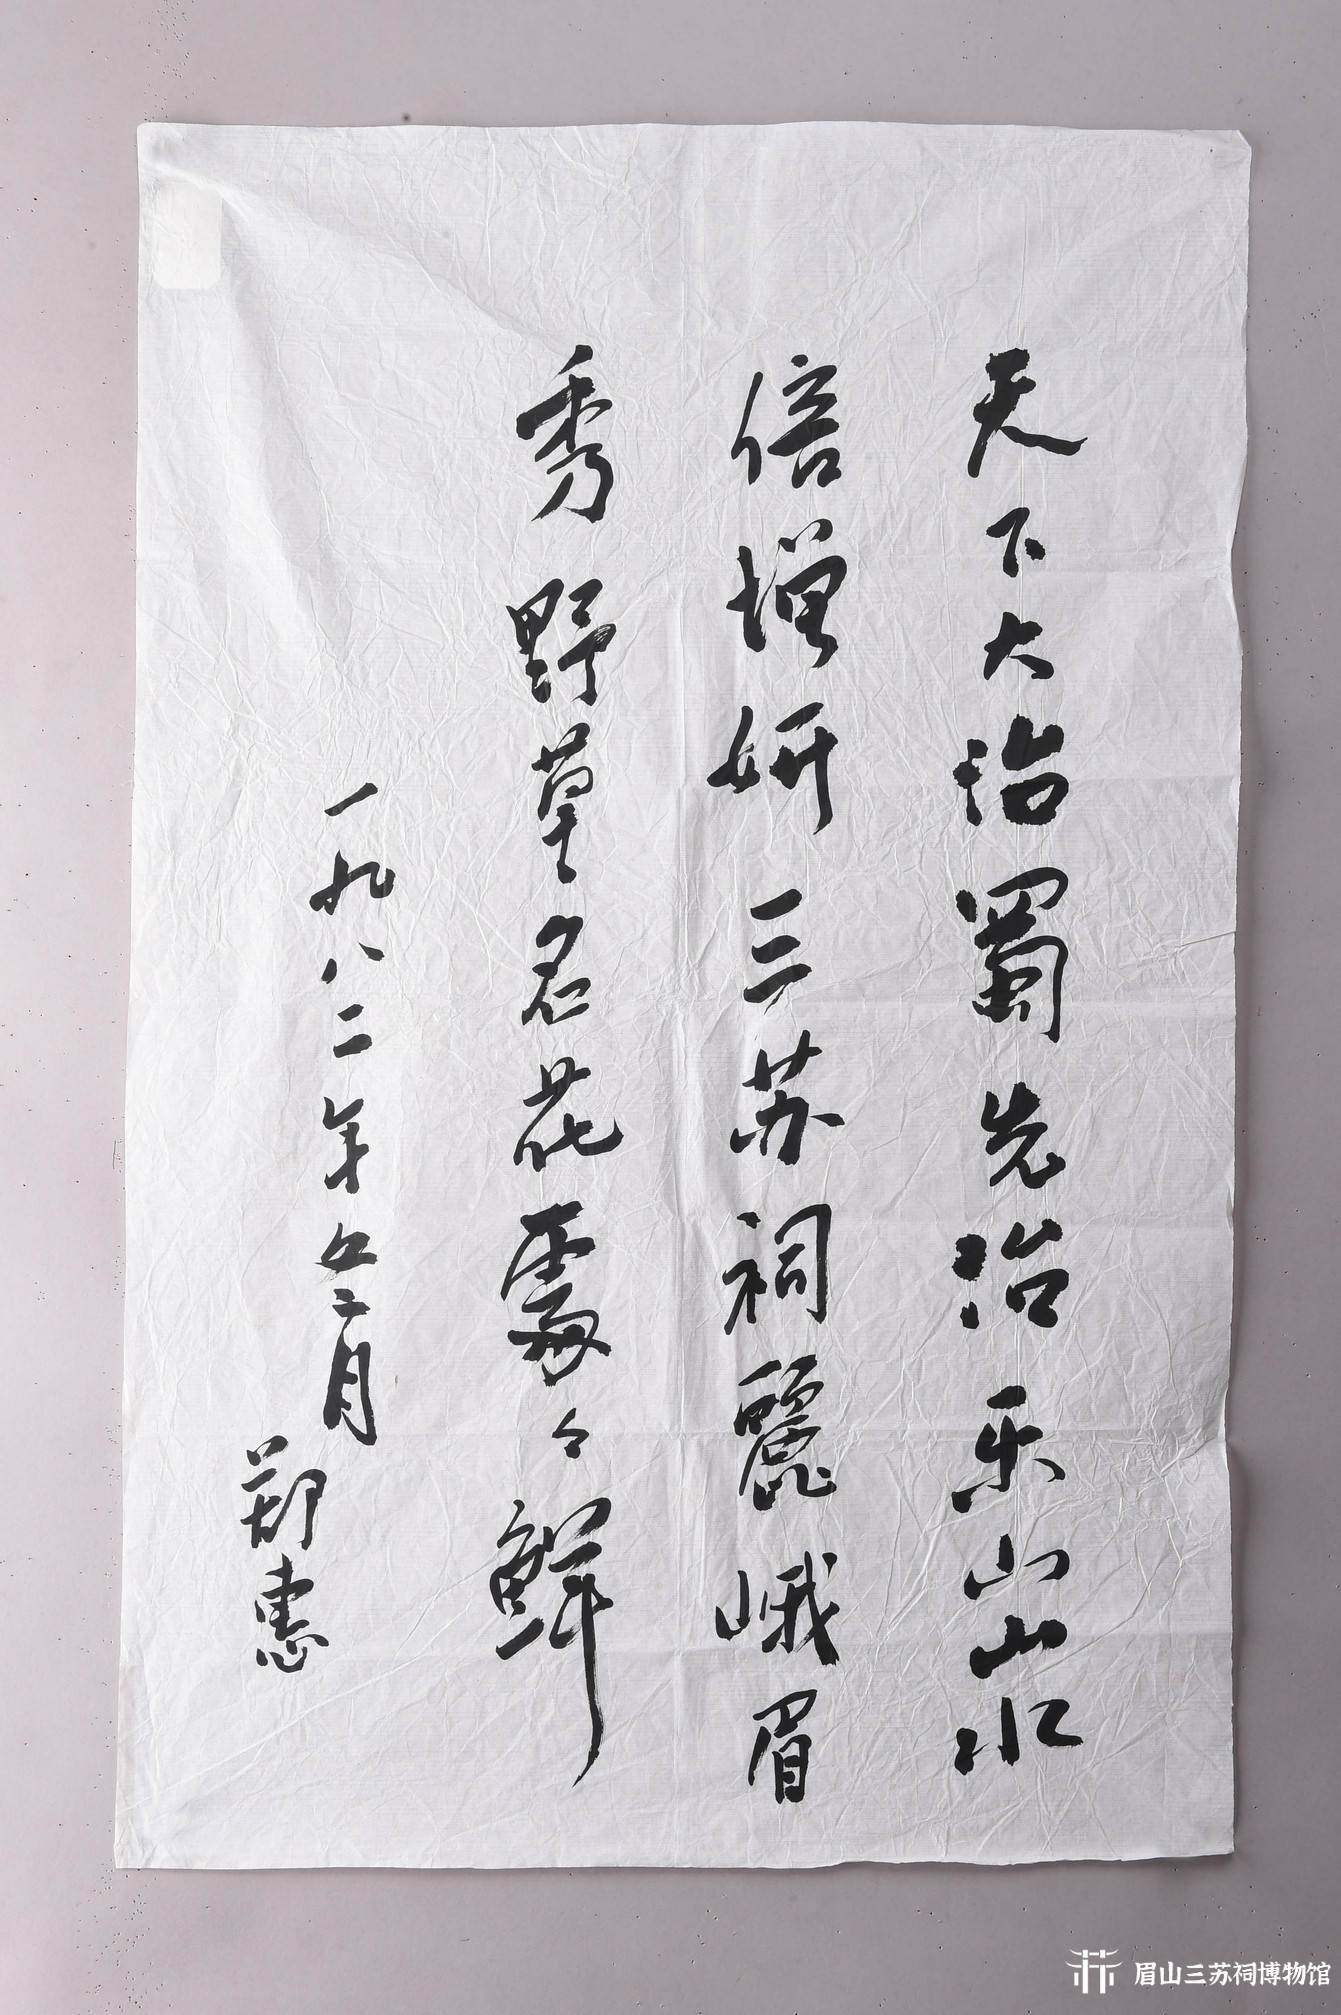 天下大治蜀先治乐山山水
倍增妍三苏祠麗峨眉
秀野草名花處々鲜
一九八二年五月
郑惠
眉山三苏祠博物馆